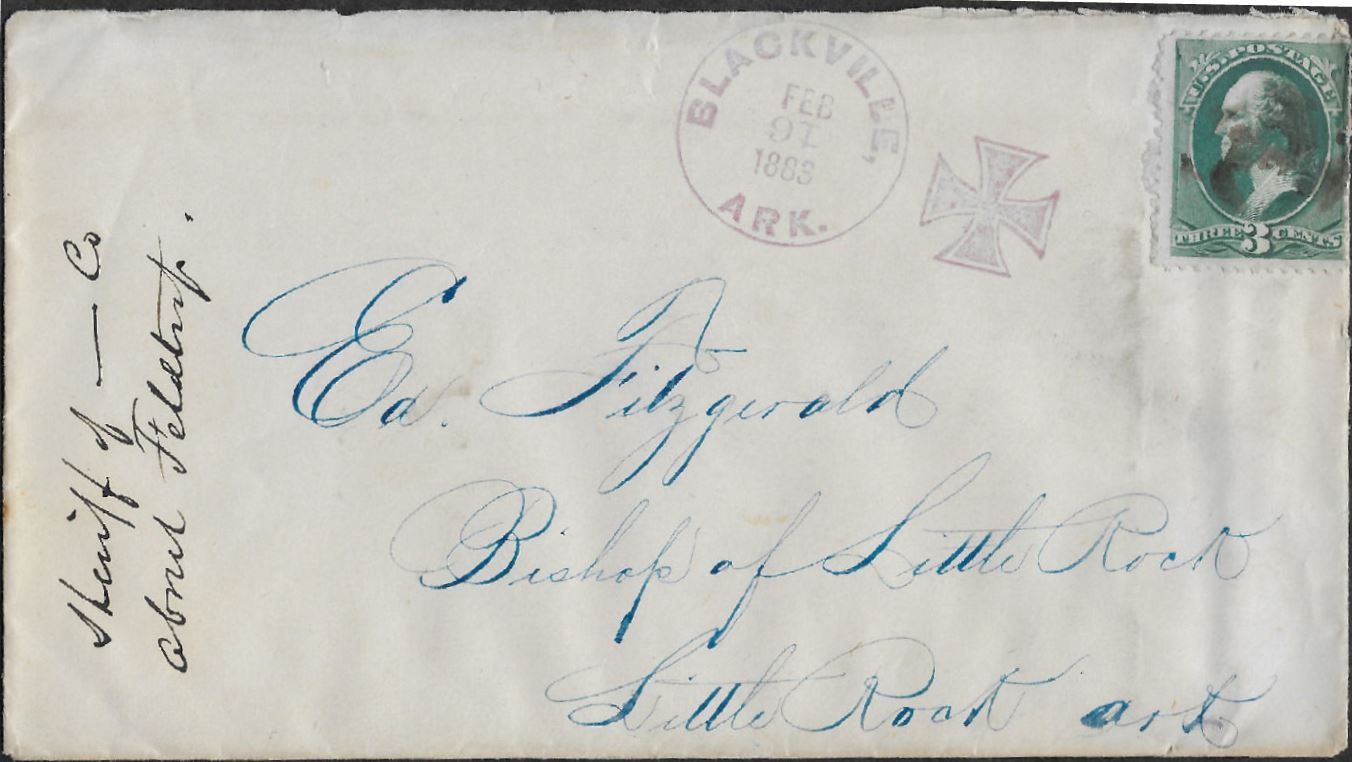 BLACKVILLE,
FEB
91
1883
ARK.
U.S. POSTAGE
THREE 3 CENTS
Sheriff of — Co
about
Ed. Fitzgerald
Bishop of Little Rock
Little Rock ark